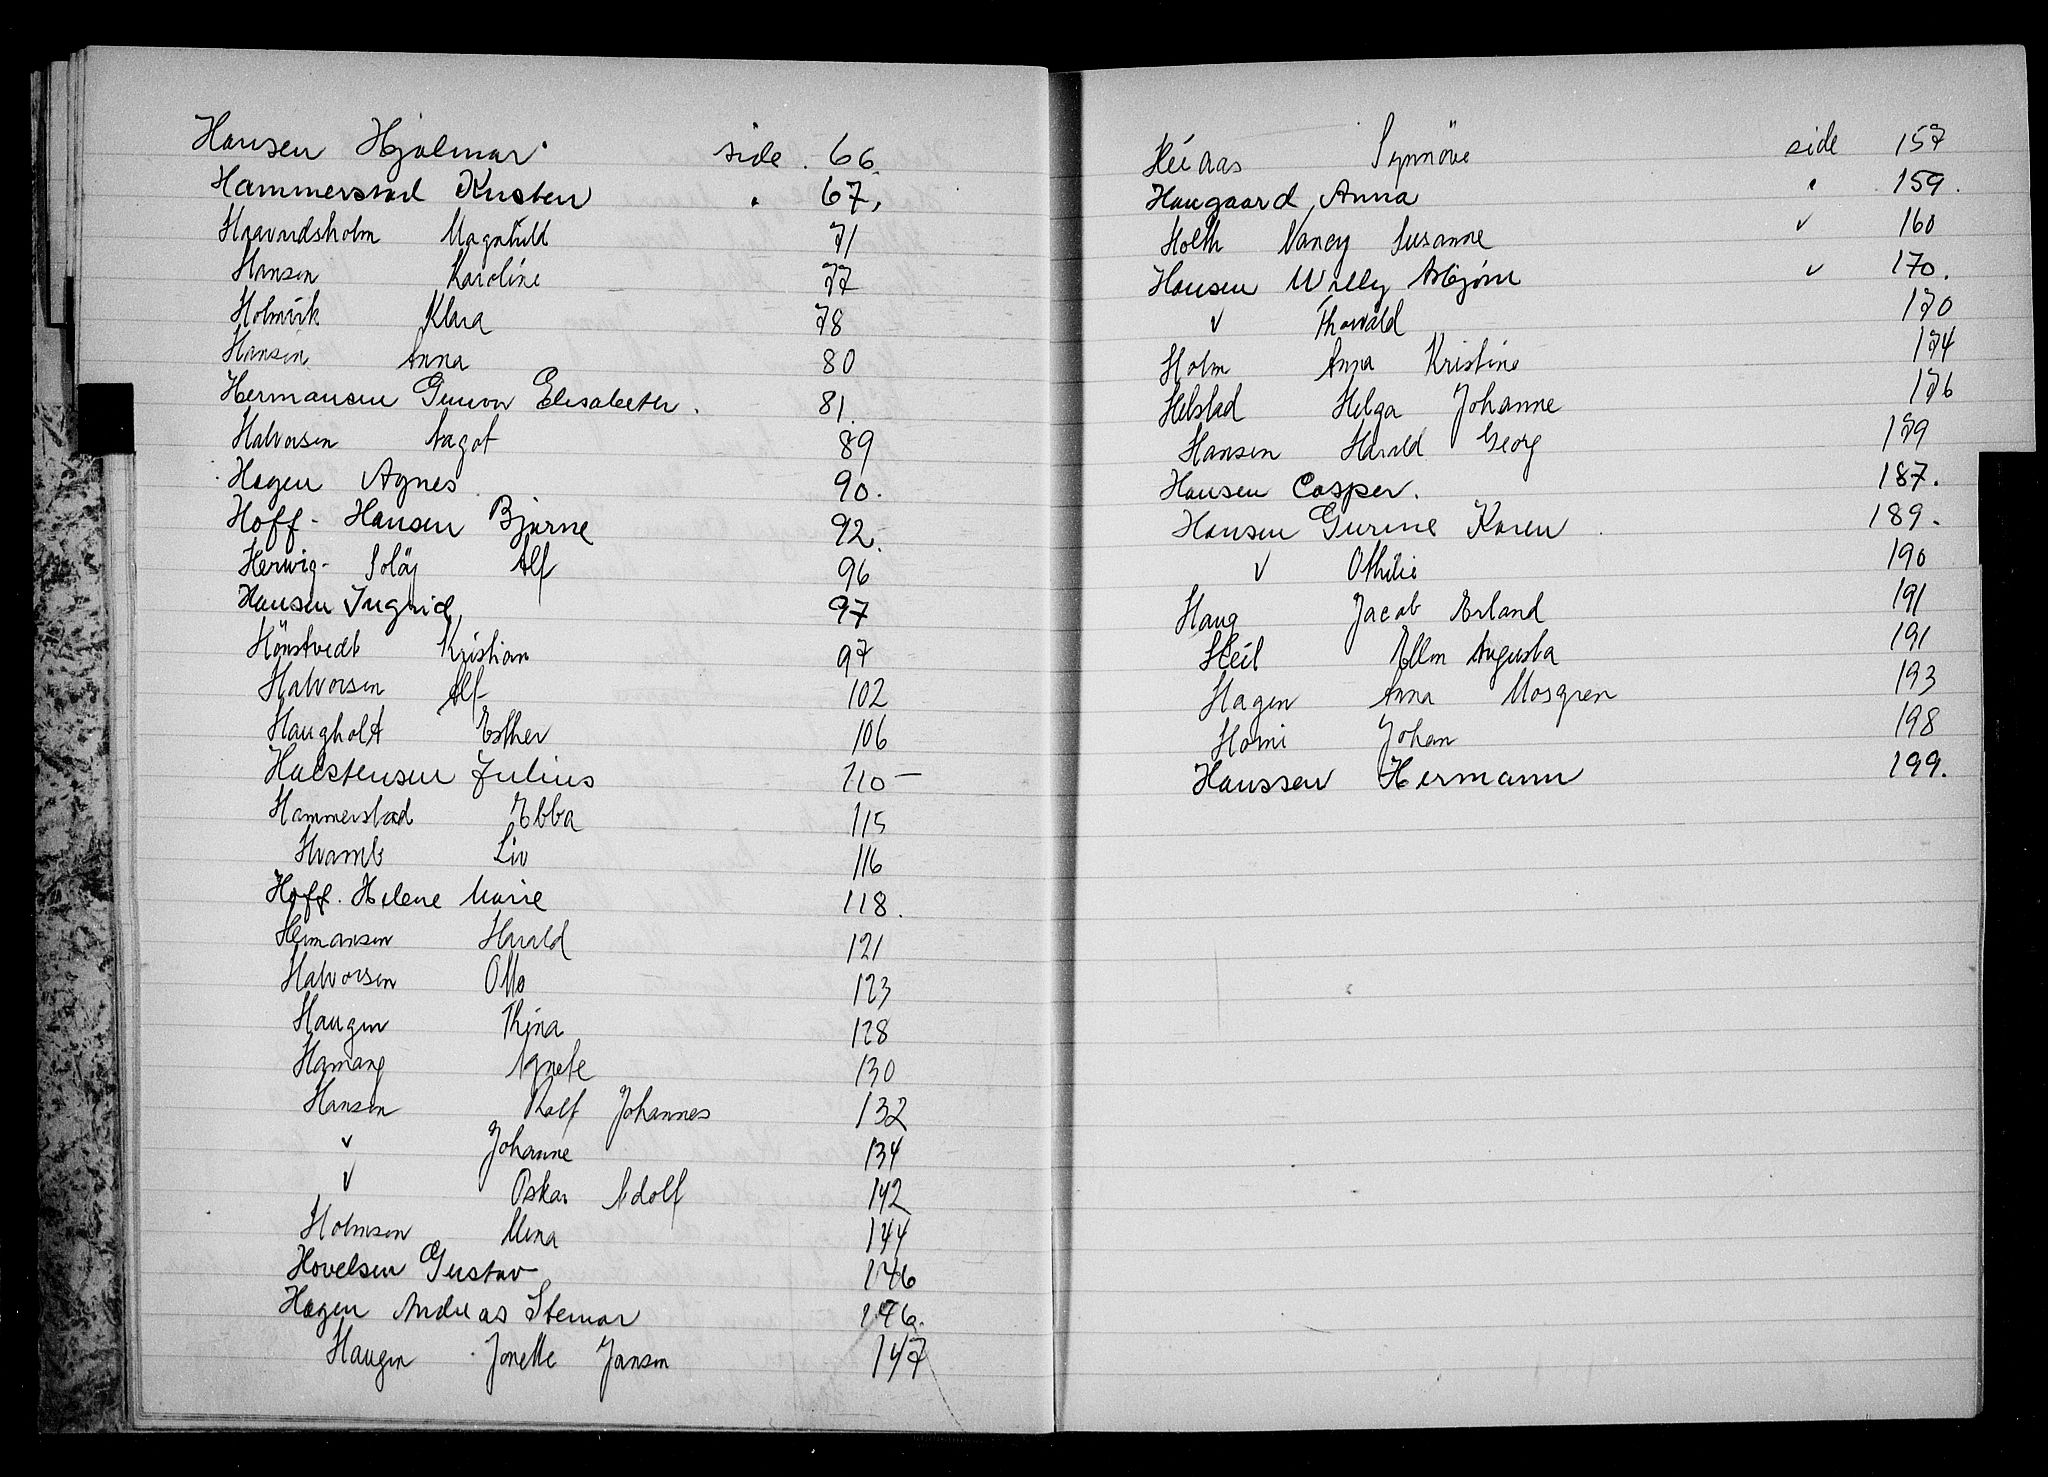 Hansen Hjalmar side. 66.
Hammerstad Kristen " 67.
Haavardsholm Magnhild 71
Hansen Karoline 77
Holmvik Klara 78
Hansen Anna 80
Hermansen Gunvor Elisabeth. 81.
Halvorsen Aagot 89
Hagen Agnes 90.
Hoff-Hansen Bjarne 92.
Herwig-Solöy Alf 96
Hansen Ingrid 97
Hönstvedt Kristian 97
Halvorsen Alf 102
Haugholt Esther 106
Halstensen Julius 110 —
Hammerstad Ebba 115
Hvamb Liv 116
Hoff. Helene Marie 118.
Hermansen Harald 121
Halvorsen Otto 123
Haugen Thina 128
Hamang Agnete 130
Hansen Rolf Johannes 132
v Johanne 134
v Oskar Adolf 142
Holmsen Mina 144
Hovelsen Gustav 146
Hagen Andreas Steinar 146.
Haugen Jonette Jansen 147
Heiaas Synnöve side 157
Haugaard, Anna " 159.
Holth Nancy Susanne v 160
Hansen Willy Asbjørn v 170.
v Thorvald 170
Holm Anna Kristine 174
Helstad Helga Johanne 176
Hansen Harald Georg 179
Hansen Casper. 187.
Hansen Gurine Karen 189.
v Othilie 190
Haug Jacob Erland 191
Heil Ellen Augusta 191
Hagen Anna Mosgren 193
Johan 198
Hanssen Hermann 199.